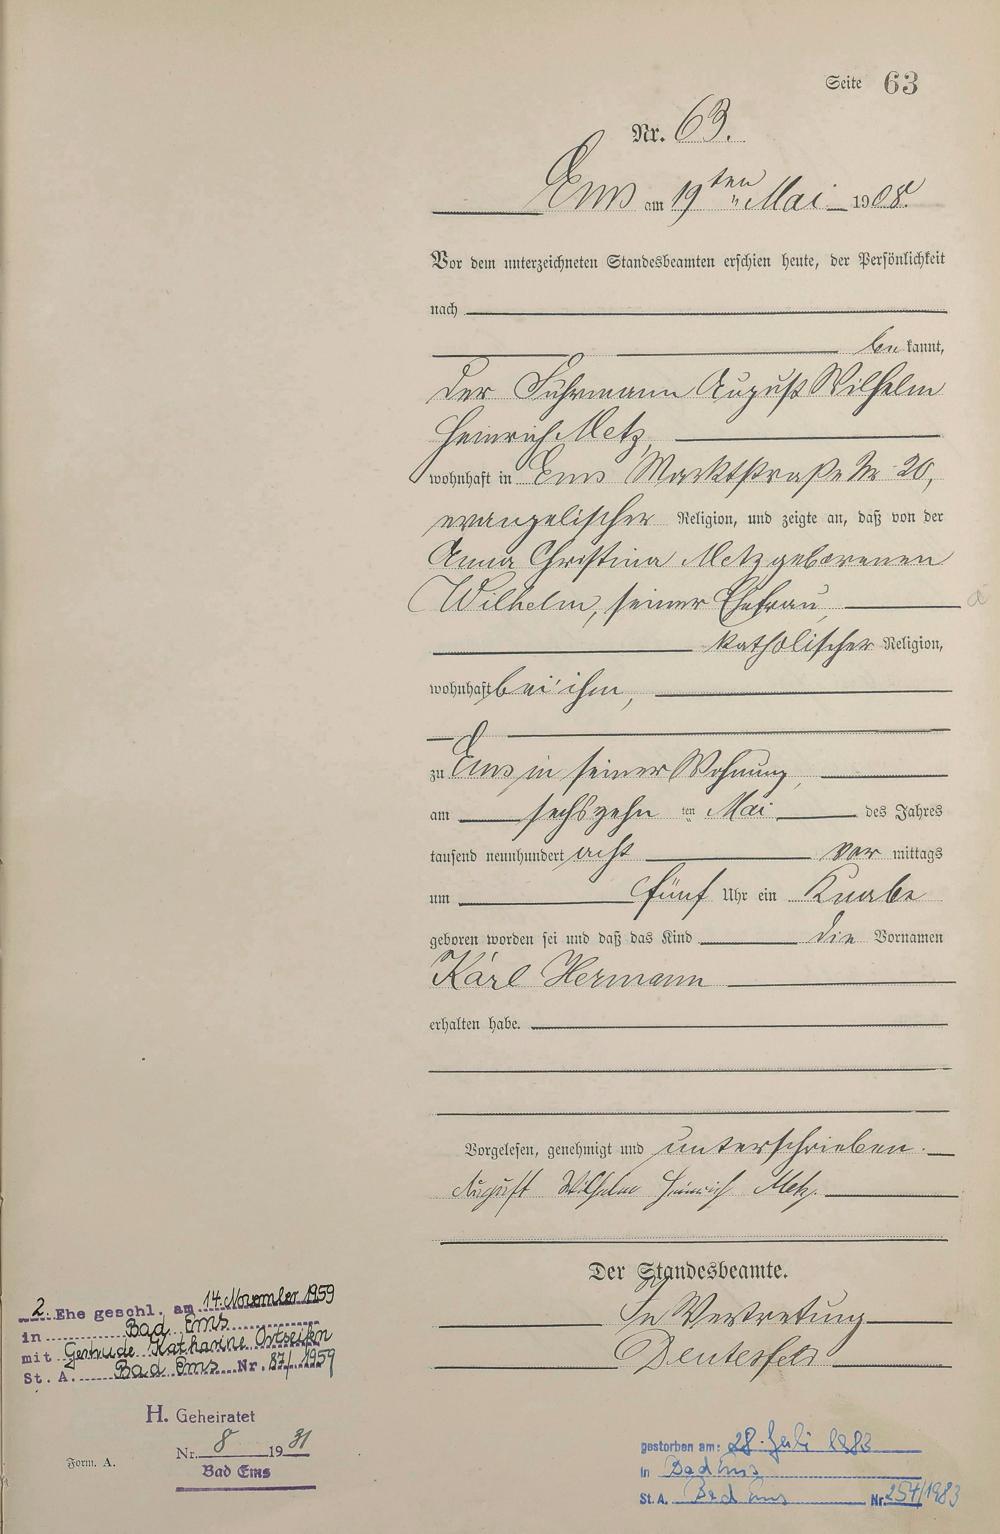 Seite 63
Nr. 63.
Ems am 19ten Mai 1908.
Vor dem unterzeichneten Standesbeamten erschien heute, der Persönlichkeit
nach
be kannt,
der Fuhrmann August Wilhelm
Heinrich Metz,
wohnhaft in Ems Marktstraße Nr 20,
evangelischer Religion, und zeigte an, daß von der
Anna Christina Metz geborenen
Wilhelm, seiner Ehefrau,
katholischer Religion,
wohnhaft bei ihm,
zu Ems in seiner Wohnung,
am sechszehn ten Mai des Jahres
tausend neunhundert acht vor mittags
um fünf Uhr ein Knabe
geboren worden sei und daß das Kind die Vornamen
Karl Hermann
erhalten habe.
Vorgelesen, genehmigt und unterschrieben.
August Wilhelm Heinrich Metz.
Der Standesbeamte.
In Vertretung
2. Ehe geschl. am 14. November 1959
in Bad Ems
mit Gertrude Katharine
St. A. Bad Ems Nr. 87/1959
H. Geheiratet
Nr. 8 1931
Bad Ems
Form. A.
gestorben am: 28. Juli 1983
in Bad Ems
St. A. Bad Ems Nr. 254/1983